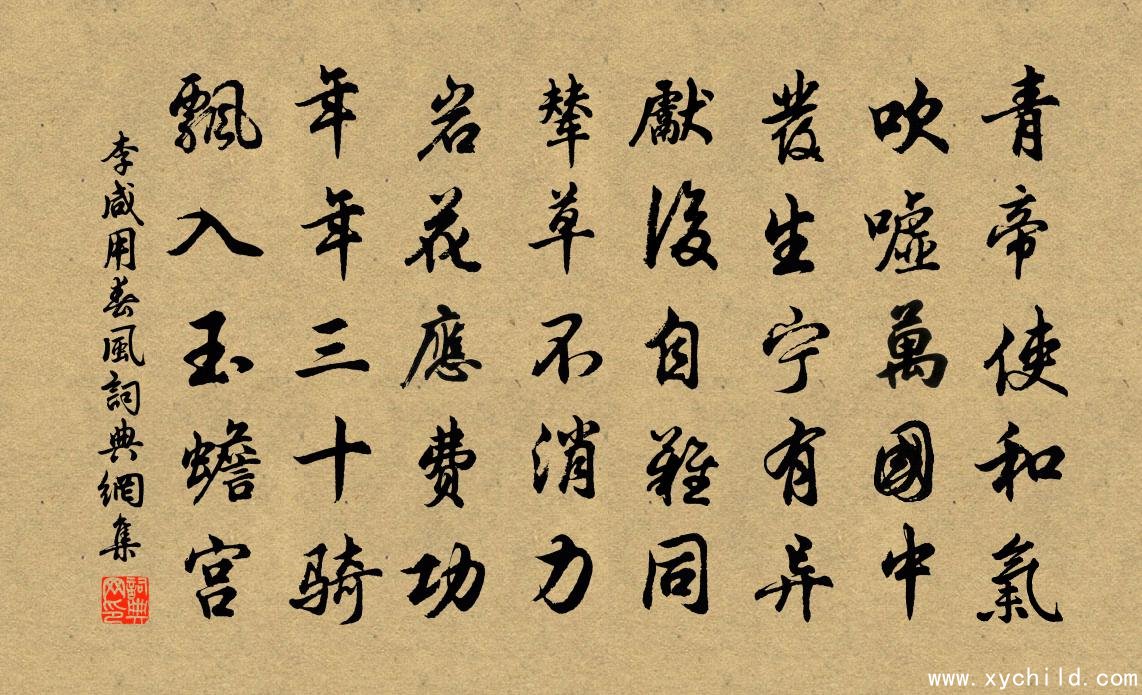 青帝使和氣
吹噓萬國中
發生宁有异
獻後自難同
輦草不消力
岩花應費功
年年三十騎
飄入玉蟾宮
李咸用春風詞典網集
詞典网印
www.xychild.com